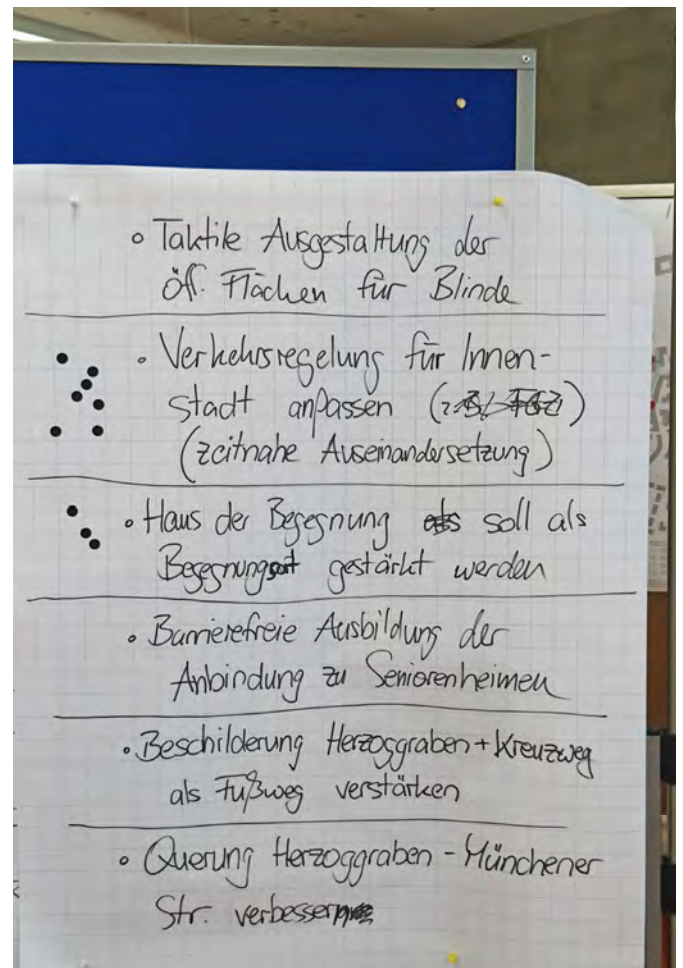 • Taktile Ausgestaltung der
öff. Flächen für Blinde
• Verkehrsregelung für Innen-
stadt anpassen ( )
(zeitnahe Auseinandersetzung)
• Haus der Begegnung soll als
Begegnungsort gestärkt werden
• Barrierefreie Ausbildung der
Anbindung zu Seniorenheimen
• Beschilderung Herzoggraben + Kreuzweg
als Fußweg verstärken
• Querung Herzoggraben - Münchener
Str. verbessern